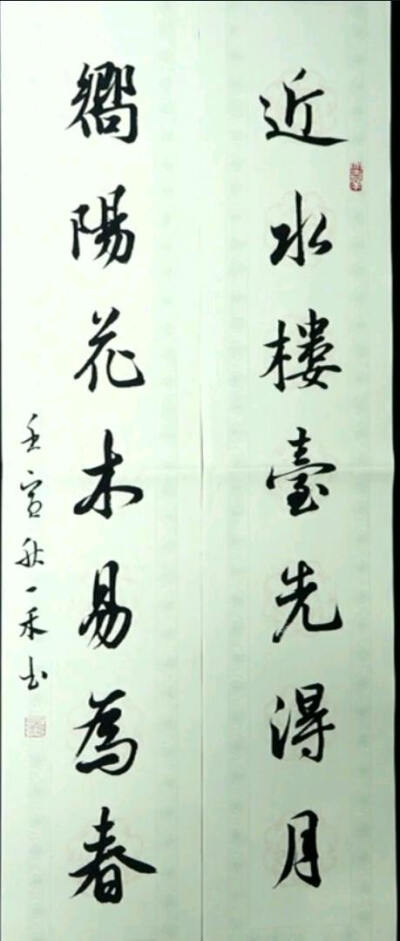 近水樓臺先得月
嚮陽花木易為春
壬寅秋一禾书